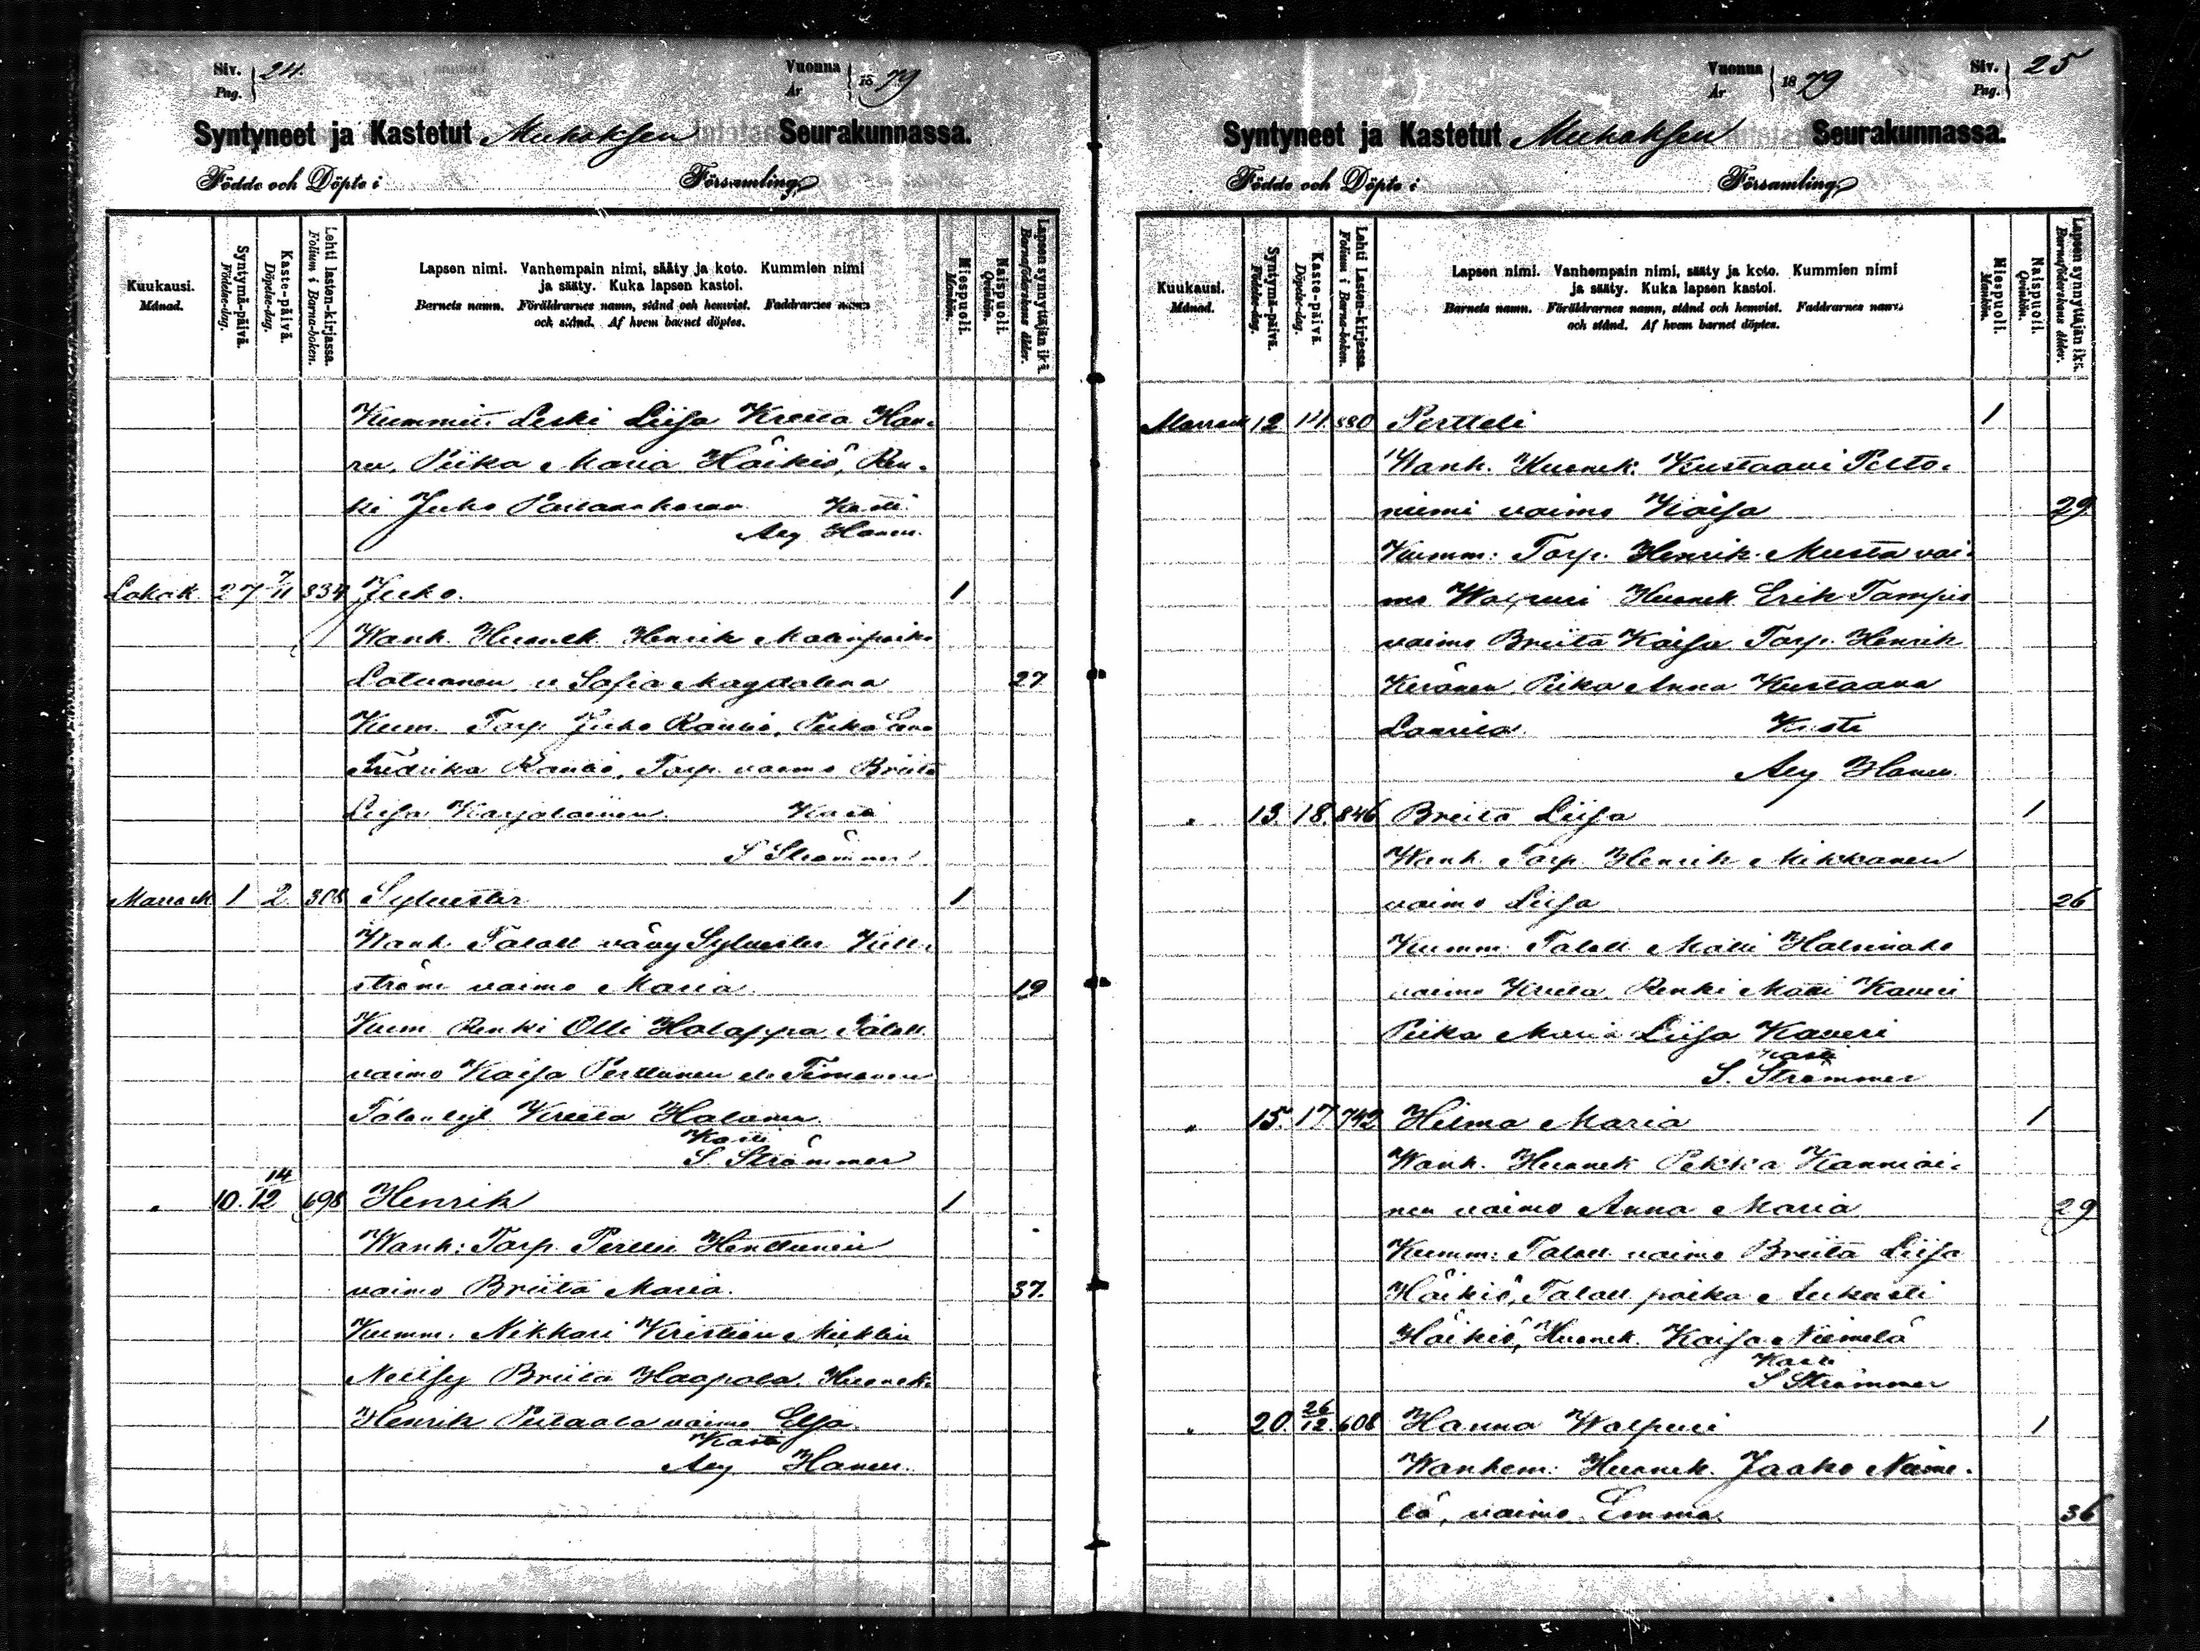 Siv. 24.
Pag.
Vuonna
År
1879
Syntyneet ja Kastetut Muhoksen Seurakunnassa.
Födde och Döpte i Församling
Kuukausi.
Månad.
Syntymä-päivä.
Födelse-dag.
Kaste-päivä.
Döpelse-dag.
Lehti lasten-kirjassa.
Folium i Barna-boken.
Lapsen nimi. Vanhempain nimi, sääty ja koto. Kummien nimi
ja sääty. Kuka lapsen kastoi.
Barnets namn. Föräldrarnes namn, stånd och hemvist. Faddrarnes namn
och stånd. Af hvem barnet döptes.
Miespuoli.
Mankön.
Naispuoli.
Qvinkön.
Lapsen synnyttäjän ikä.
Barnaföderskans ålder.
Kummit. Leski Liisa Kreeta Han-
nu, Piika Maria Häikiö, Ren-
ki Juho Kasti
Aug Hanen.
Lokak. 27 7/11 834 Juho. 1
Wanh. Huonek. Henrik
v. Sofia Magdalena 27
Kum. Torp. Juho Piika
Fredrika Torp. vaimo Briita
Liisa Karjalainen. Kasti
S Strömmer
Marrask 1 2 308 Sylvester 1
Wanh. Talall vävy Sylvester Kell-
ström vaimo Maria 19
Kum Renki Olli Holappa, Talall
vaimo Kaisa Perttunen
Kreeta Halonen
Kasti
S. Strömmer
" 10. 14/12 698 Henrik 1
Wanh: Torp. Pertti Henttunen
vaimo Briita Maria. 37.
Kumm. Nikkari Kristian
Neitsy Briita Haapala. Huonek.
Henrik vaimo Elsa
Kasti
Aug Hanen.
Vuonna
År
1879
Siv. 25
Pag.
Syntyneet ja Kastetut Muhoksen Seurakunnassa.
Födde och Döpte i Församling
Kuukausi.
Månad.
Syntymä-päivä.
Födelse-dag.
Kaste-päivä.
Döpelse-dag.
Lehti lasten-kirjassa.
Folium i Barna-boken.
Lapsen nimi. Vanhempain nimi, sääty ja koto. Kummien nimi
ja sääty. Kuka lapsen kastoi.
Barnets namn. Föräldrarnes namn, stånd och hemvist. Faddrarnes namn
och stånd. Af hvem barnet döptes.
Miespuoli.
Mankön.
Naispuoli.
Qvinkön.
Lapsen synnyttäjän ikä.
Barnaföderskans ålder.
Marrask 12 14 880 Pertteli 1
Wanh. Huonek: Kustaavi Pelto-
niemi vaimo Kaisa 29
Kumm: Torp. Henrik Musta vai-
mo Walpuri Huonek Erik Tampio
vaimo Briita Kaisa Torp. Henrik
Keränen Piika Anna Kustaava
Laurila Kasti
Aug Hanen
" 13. 18. 846 Breita Liisa 1
Wanh. Torp. Henrik Mikkanen
vaimo Liisa 26
Kumm: Talall Matti Halunaho
vaimo Kreeta, Renki Matti Kaveri
Piika Maria Liisa Kaveri
Kasti
S. Strömmer
" 15. 17 742 Hilma Maria 1
Wanh. Huonek Pekka Kanniai-
nen vaimo Anna Maria 29
Kumm: Talall vaimo Breita Liisa
Häikiö, Talall poika Aukusti
Häikiö, Huonek. Kaisa Niemelä
Kasti
S Strömmer
" 20. 26/12. 608 Hanna Walpuri 1
Wanhem: Huonek. Jaako Nieme-
lä, vaimo Emma. 36